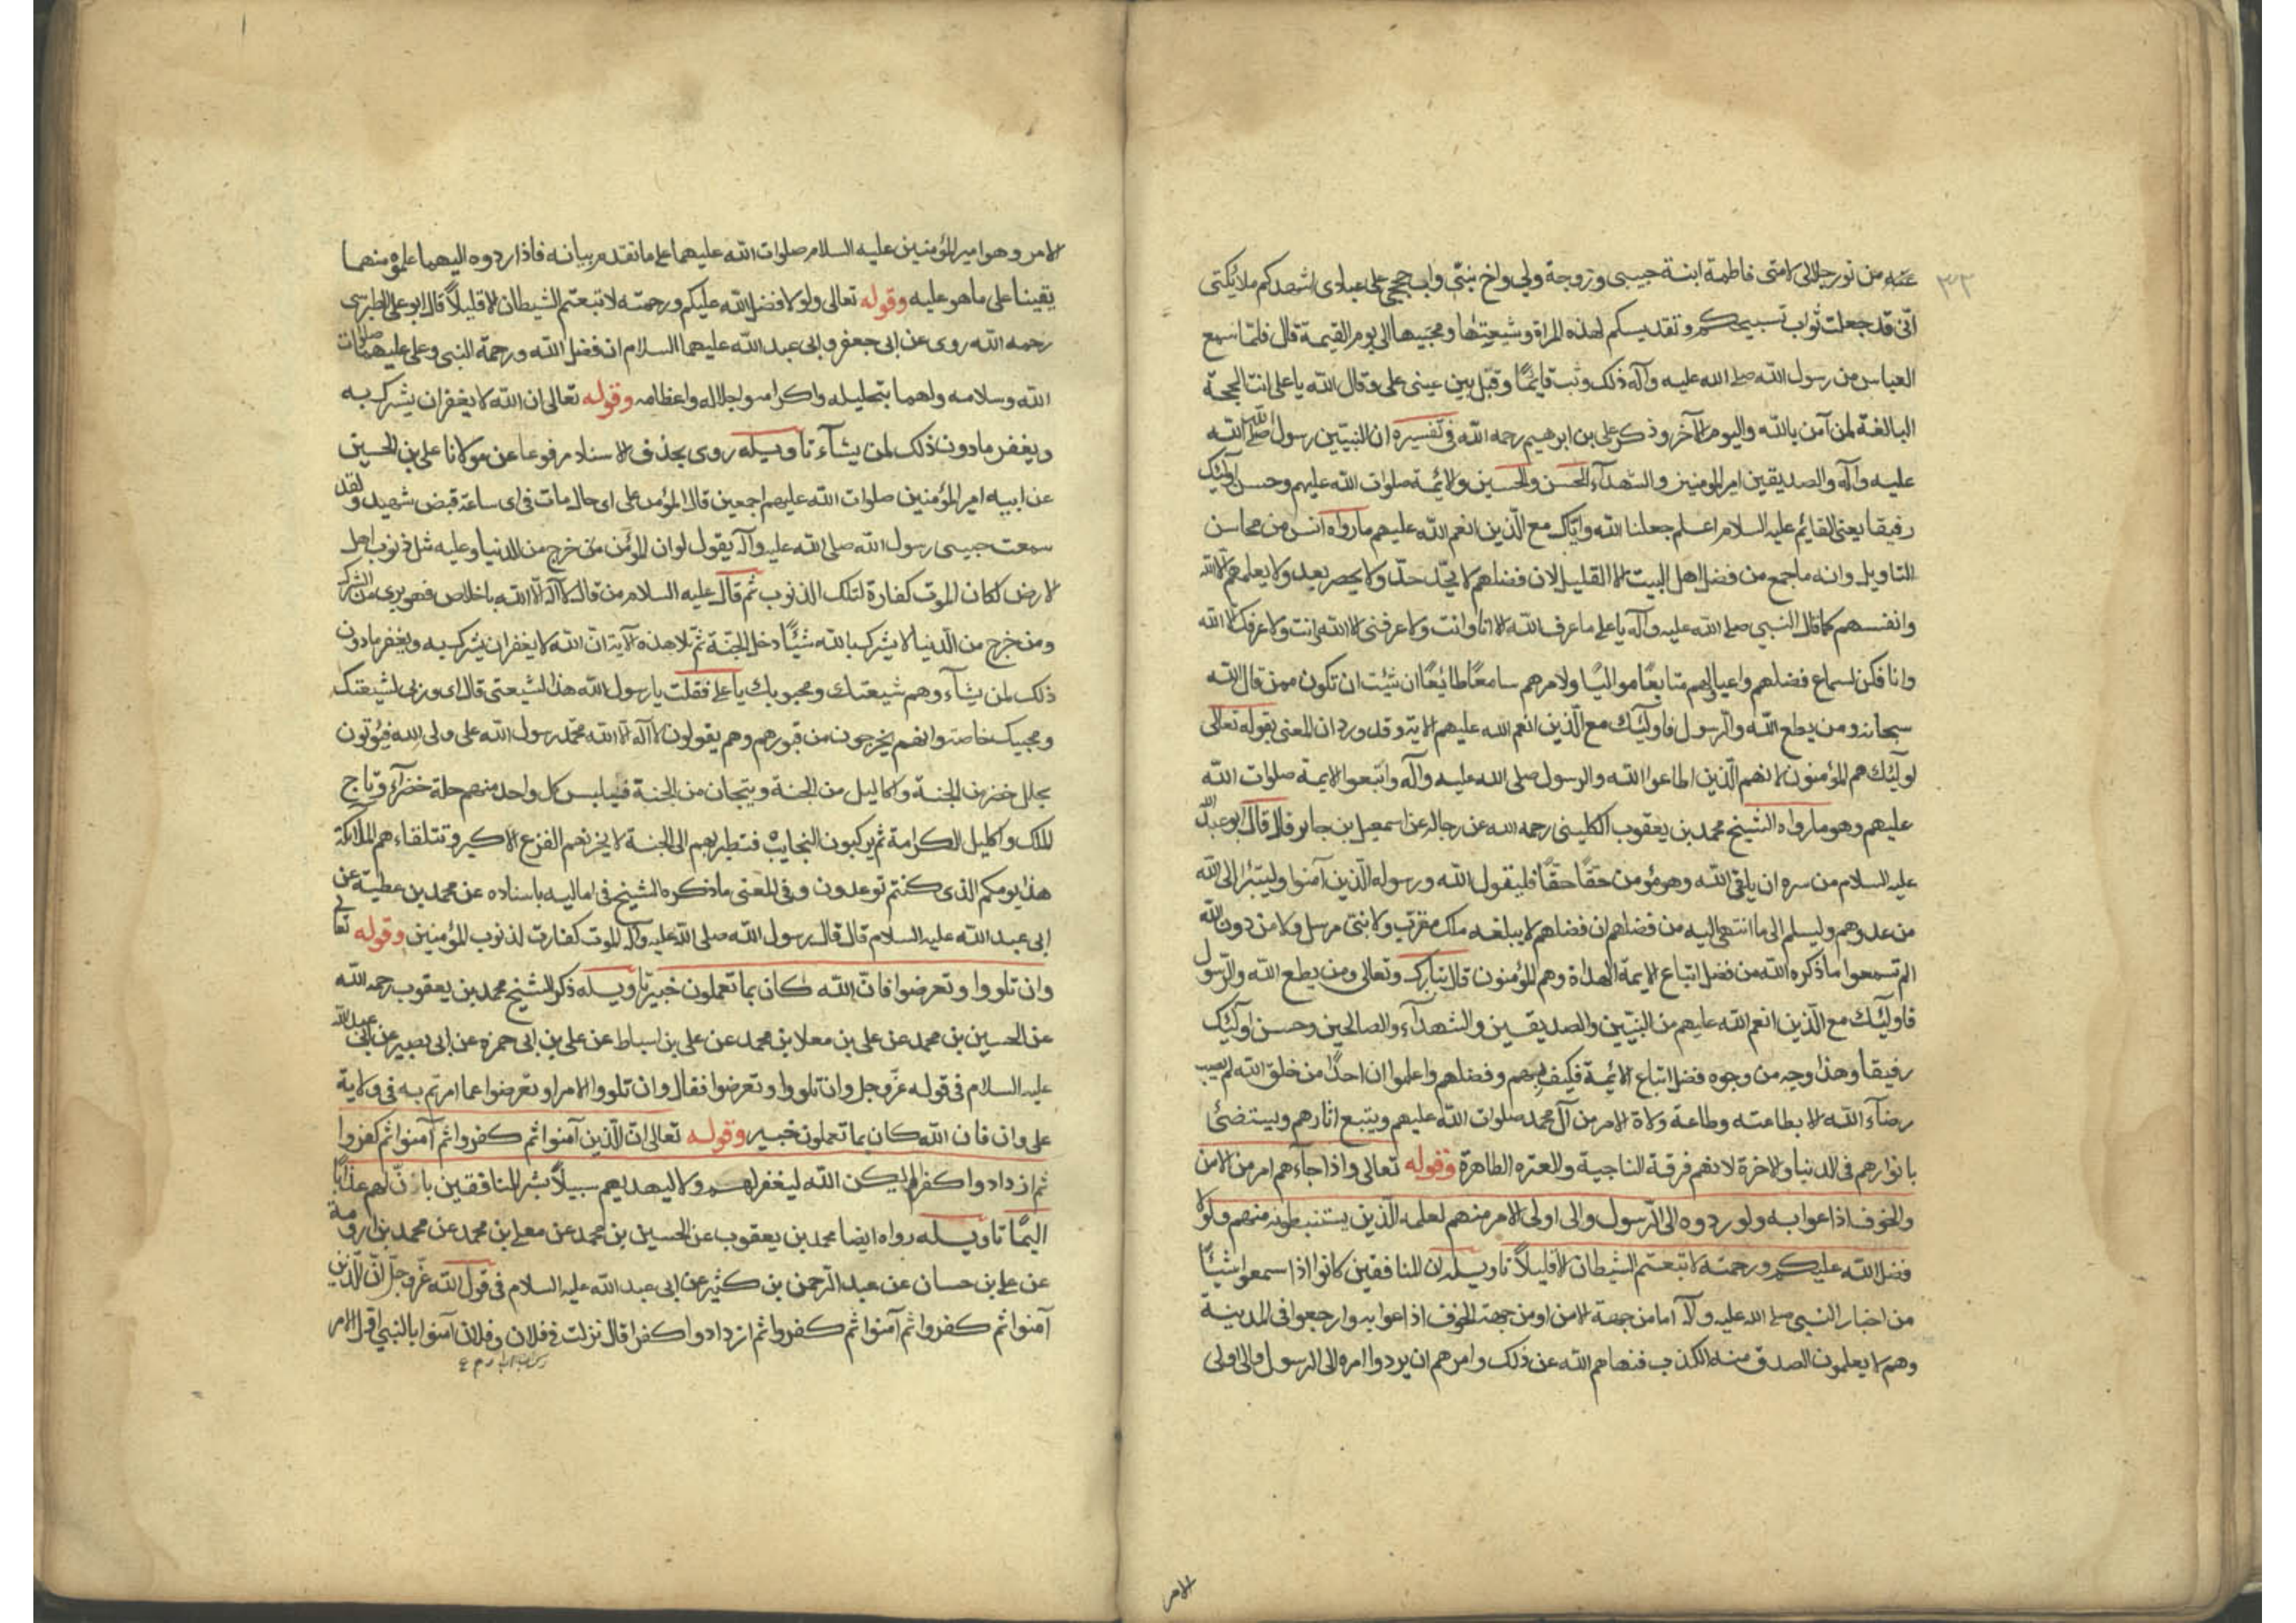 ٣٢
عنه من نور جلالي لامتى فاطمة ابنة حبيبى وزوجة وليي واخ نبيّى واب حججى على عبادى اشهدكم ملائكتى
انّى قد جعلت ثواب تسبيحكم وتقديسكم لهذه المراة وشيعتها ومحبّيها الى يوم القيمة قال فلمّا سمع
العباس من رسول الله صلى الله عليه وآله ذلك وثب قائمًا وقبّل بين عينى على وقال الله يا على انت الحجة
البالغة لمن آمن بالله واليوم الآخر وذكر على بن ابرهيم رحمه الله فى تفسيره ان النبيّين رسول الله صلى الله
عليه وآله والصديقين امير المؤمنين والشهدآء الحسن والحسين والائمة صلوات الله عليهم وحسن اولئك
رفيقا يعنى القايم عليه السلام اعلم جعلنا الله واياك مع الّذين انعم الله عليهم ما رواه انس من محاسن
التاويل وانه ما جمع من فضل اهل البيت الا القليل لان فضلهم لا يحدّ حدّ ولا يحصر بعد ولا يعلمهم الا الله
وانفسهم كما قال النبي صلى الله عليه وآله يا على ما عرف الله الا انا وانت ولا عرفنى الا الله وانت ولا عرفك الا الله
وانا فكن لسماع فضلهم واعيا لهم متابعًا مواليًا ولامرهم سامعًا طائعًا ان شئت ان تكون ممن قال الله
سبحانه ومن يطع الله والرسول فاولئك مع الّذين انعم الله عليهم الاية وقد ورد ان المعنى بقوله تعالى
اولئك هم المؤمنون لانهم الّذين اطاعوا الله والرسول صلى الله عليه وآله واتبعوا الايمة صلوات الله
عليهم وهو ما رواه الشيخ محمد بن يعقوب الكلينى رحمه الله عن رجاله عن اسمعيل بن جابر قال قال ابو عبد الله
عليه السلام من سره ان يلقى الله وهو مؤمن حقًا حقًا فليقول الله ورسوله الّذين آمنوا وليتبرّا الى الله
من عدوهم وليسلم الى ما انتهى اليه من فضلهم ان فضلهم لا يبلغه ملك مقرب ولا نبى مرسل ولا من دون الله
الم تسمعوا ما ذكره الله من فضل اتباع الايمة الهداة وهم المؤمنون قال تبارك وتعالى ومن يطع الله والرّسول
فاولئك مع الّذين انعم الله عليهم من النبيّين والصديقين والشهدآء والصالحين وحسن اولئك
رفيقا وهذا وجه من وجوه فضل اتباع الائمة فكيف بهم وفضلهم واعلموا ان احدًا من خلق الله لم يصب
رضآء الله الا بطاعته وطاعة ولاة الامر من آل محمد صلوات الله عليهم ويتبع اثارهم ويستضئ
بانوارهم فى الدنيا والاخرة لانهم فرقة الناجية والعتره الطاهرة وقوله تعالى واذا جآءهم امر من الامن
والخوف اذاعوا به ولو ردوه الى الرّسول والى اولى الامر منهم لعلمه الّذين يستنبطونه منهم ولولا
فضل الله عليكم ورحمته لاتبعتم الشيطان الا قليلاً تاويله ان المنافقين كانوا اذا سمعوا شيئًا
من اخبار النبى صلى الله عليه وآله اما من جهة الامن او من جهة الخوف اذاعوا به وارجعوا فى المدينة
وهم لا يعلمون الصدق منه الكذب فنهاهم الله عن ذلك وامرهم ان يردوا امره الى الرسول والى اولى
الامر
الامر وهو امير المؤمنين عليه السلام صلوات الله عليهما على ما تقدم بيانه فاذا ردوه اليهما علموه منهما
يقينا على ما هو عليه وقوله تعالى ولولا فضل الله عليكم ورحمته لاتبعتم الشيطان الا قليلاً قال ابو على الطبرسى
رحمه الله روى عن ابى جعفر وابى عبد الله عليهما السلام ان فضل الله ورحمة النبى وعلى عليهما صلوات
الله وسلامه ولهما بتجليله واكرامه واجلاله واعظامه وقوله تعالى ان الله لا يغفر ان يشرك به
ويغفر ما دون ذلك لمن يشآء تاويله روى بحذف الاسناد مرفوعا عن مولانا على بن الحسين
عن ابيه امير المؤمنين صلوات الله عليهم اجمعين قال المؤمن على اى حال مات فى اى ساعة قبض شهيد ولقد
سمعت حبيبى رسول الله صلى الله عليه وآله يقول لو ان المؤمن من خرج من الدنيا وعليه مثل ذنوب اهل
الارض لكان الموت كفارة لتلك الذنوب ثم قال عليه السلام من قال لا اله الا الله باخلاص فهو برى من الشرك
ومن خرج من الدنيا لا يشرك بالله شيئًا دخل الجنّة ثم تلا هذه الآية انّ الله لا يغفر ان يشرك به ويغفر ما دون
ذلك لمن يشآء وهم شيعتك ومحبوبك يا على فقلت يا رسول الله هذا لشيعتى قال اى وربى لشيعتك
ومحبيك خاصة وانهم يخرجون من قبورهم وهم يقولون لا اله الا الله محمّد رسول الله على ولى الله فيؤتون
بحلل خضر من الجنة واكاليل من الجنة وتيجان من الجنة فيلبس كل واحد منهم حلة خضرآء وتاج
الملك واكليل الكرامة ثم يركبون النجايب فتطير بهم الى الجنة لا يحزنهم الفزع الاكبر وتتلقاءهم الملائكة
هذا يومكم الذى كنتم توعدون وفى المعنى ما ذكره الشيخ فى اماليه باسناده عن محمد بن عطية عن
ابى عبد الله عليه السلام قال قال رسول الله صلى الله عليه وآله الموت كفارت لذنوب المؤمنين وقوله تعالى
وان تلووا وتعرضوا فانّ الله كان بما تعملون خبيرا تاويله ذكر الشيخ محمد بن يعقوب رحمه الله
عن الحسين بن محمد عن على بن معلا بن محمد عن على بن اسباط عن على بن ابى حمزه عن ابى بصير عن ابى عبد الله
عليه السلام فى قوله عزّ وجل وان تلووا وتعرضوا فقال وان تلووا الامر او تعرضوا عما امرتم به فى ولاية
على وان فان الله كان بما تعملون خبير وقوله تعالى انّ الّذين آمنوا ثم كفروا ثم آمنوا ثم كفروا
ثم ازدادوا كفرا لم يكن الله ليغفر لهم ولا ليهديهم سبيلاً بشر المنافقين بانّ لهم عذابًا
اليمًا تاويله رواه ايضا محمد بن يعقوب عن الحسين بن محمد عن معلى بن محمد عن محمد بن ارومة
عن على بن حسان عن عبد الرّحمن بن كثير عن ابى عبد الله عليه السلام فى قول الله عزّ وجلّ انّ الّذين
آمنوا ثم كفروا ثم آمنوا ثم كفروا ثم ازدادوا كفرا قال نزلت فى فلان وفلان آمنوا بالنبى اول الامر